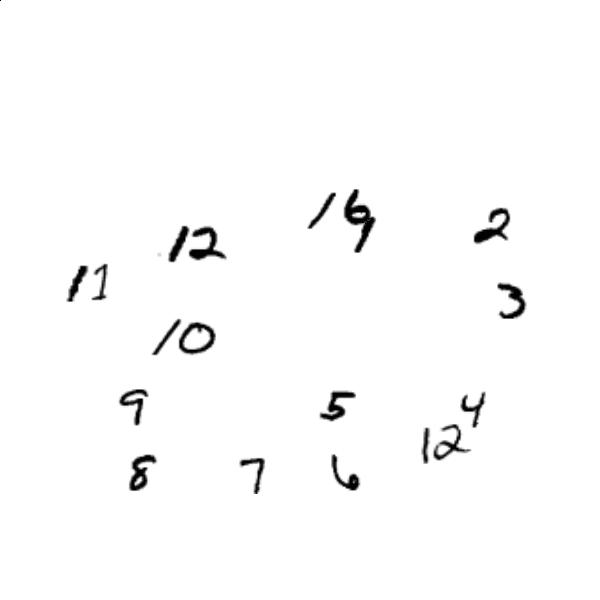 16 2
12 1
11 3
10
9 5 4
12
8 7 6